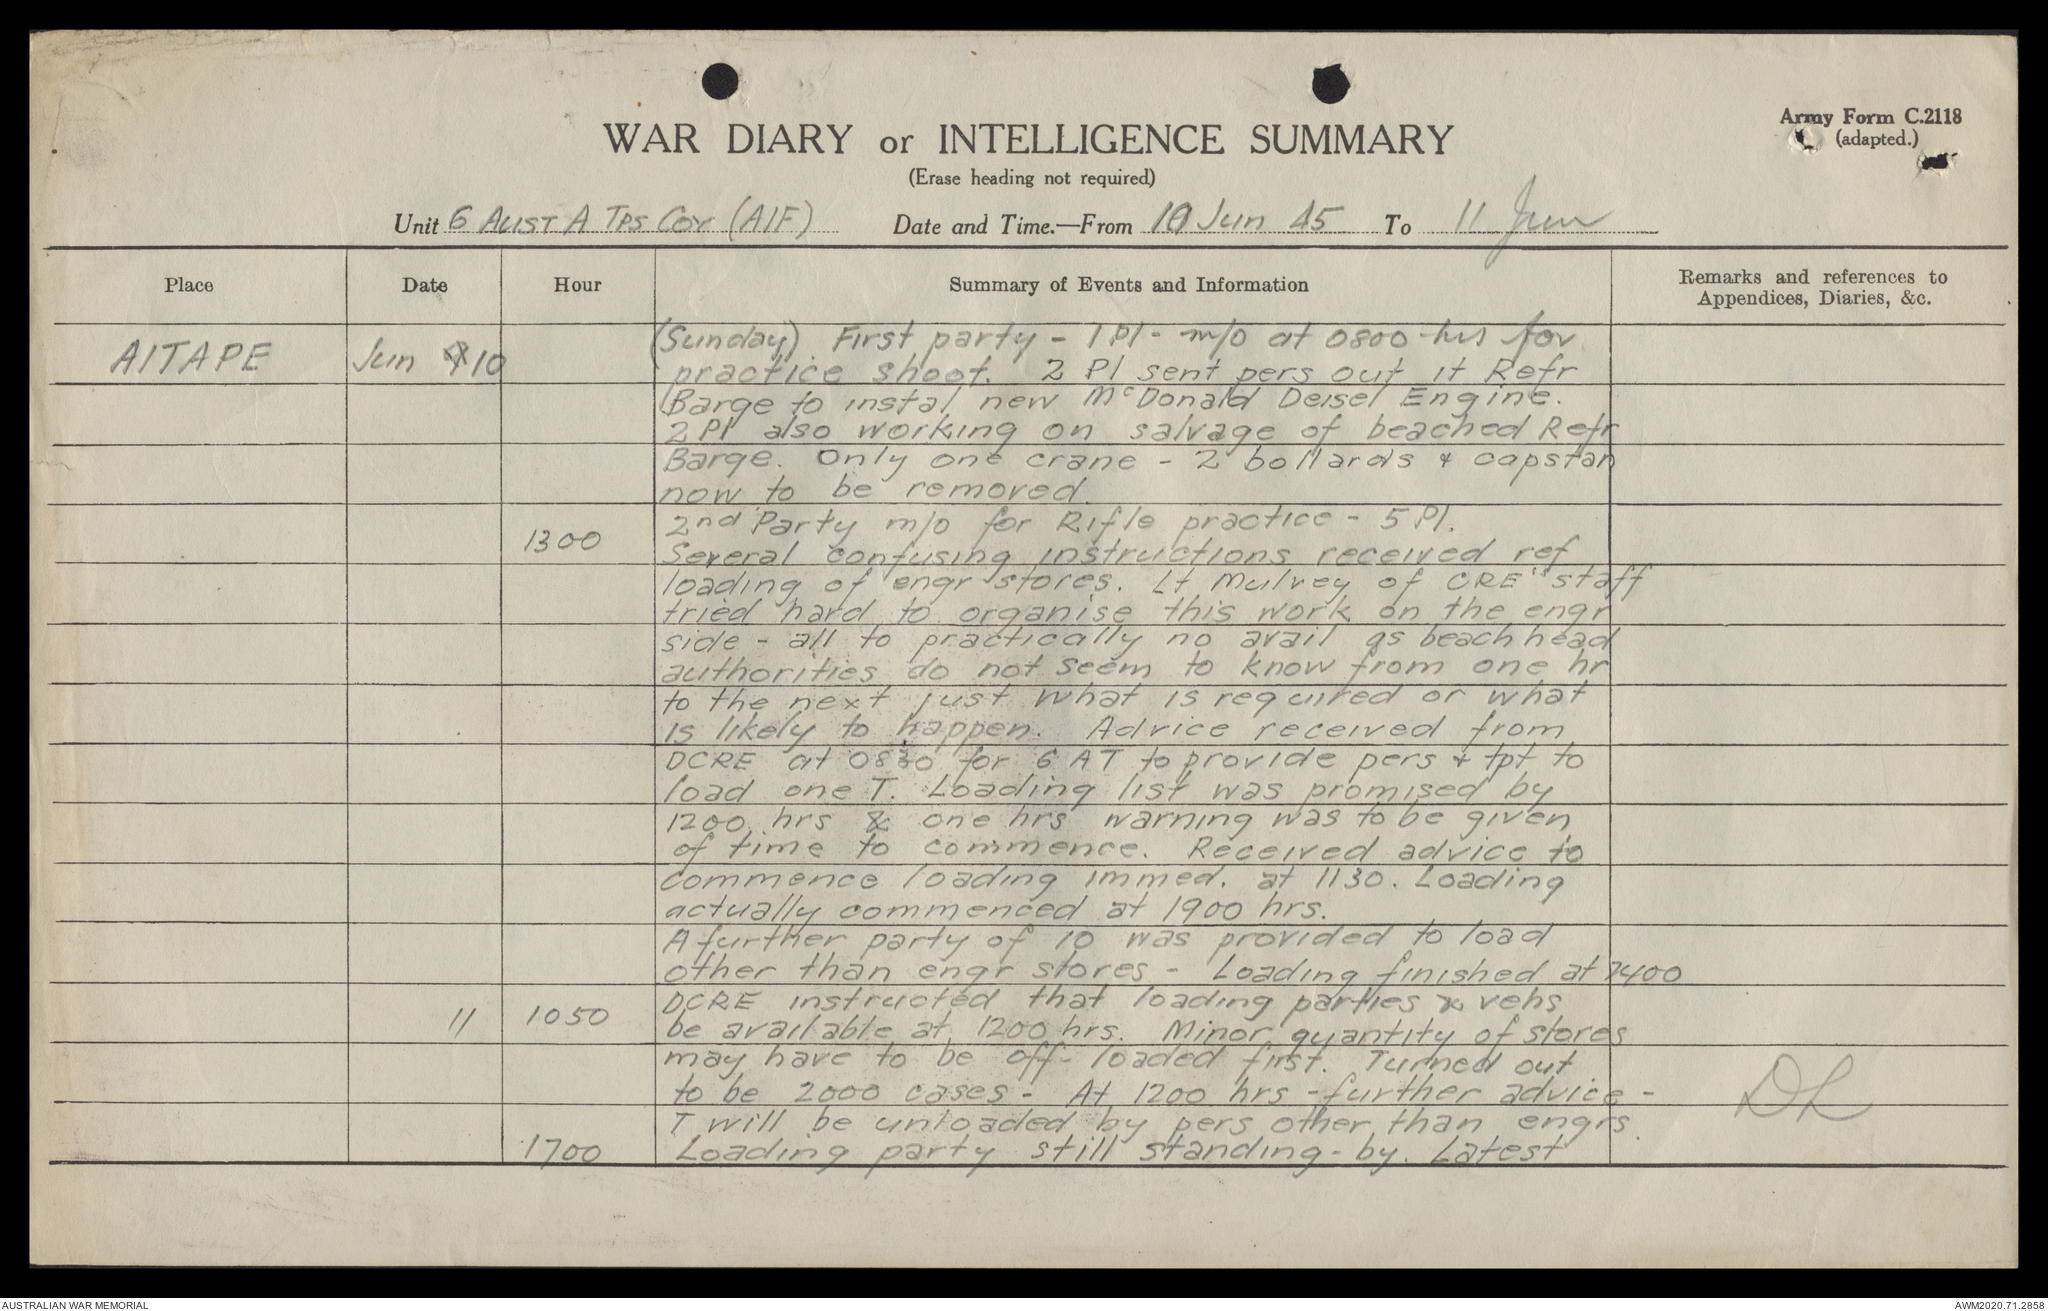 Army Form C.2118
(adapted.)
WAR DIARY or INTELLIGENCE SUMMARY
(Erase heading not required)
Unit 6 AUST A TPS COY (AIF) Date and Time.—From 10 Jun 45 To 11 Jun
Place Date Hour Summary of Events and Information Remarks and references to
Appendices, Diaries, &c.
AITAPE Jun 10 (Sunday) First party - 1 Pl - m/o at 0800 hrs for
practice shoot. 2 Pl sent pers out it Refr
Barge to instal new McDonald Deisel Engine.
2 Pl also working on salvage of beached Refr
Barge. Only one crane - 2 bollards & capstan
now to be removed.
1300 2nd Party m/o for Rifle practice - 5 Pl.
Several confusing instructions received ref
loading of engr stores. Lt Mulvey of CRE" staff
tried hard to organise this work on the engr
side - all to practically no avail as beach head
authorities do not seem to know from one hr
to the next just what is required or what
is likely to happen. Advice received from
DCRE at 0830 for 6 AT to provide pers & tpt to
load one T. Loading list was promised by
1200 hrs & one hrs warning was to be given
of time to commence. Received advice to
commence loading immed. at 1130. Loading
actually commenced at 1900 hrs.
A further party of 10 was provided to load
other than engr stores - Loading finished at 2400
11 1050 DCRE instructed that loading parties & vehs
be available at 1200 hrs. Minor quantity of stores
may have to be off-loaded first. Turned out
to be 2000 cases - At 1200 hrs - further advice -
T will be unloaded by pers other than engrs.
1700 Loading party still standing-by. Latest
DL
AUSTRALIAN WAR MEMORIAL
AWM2020.71.2858